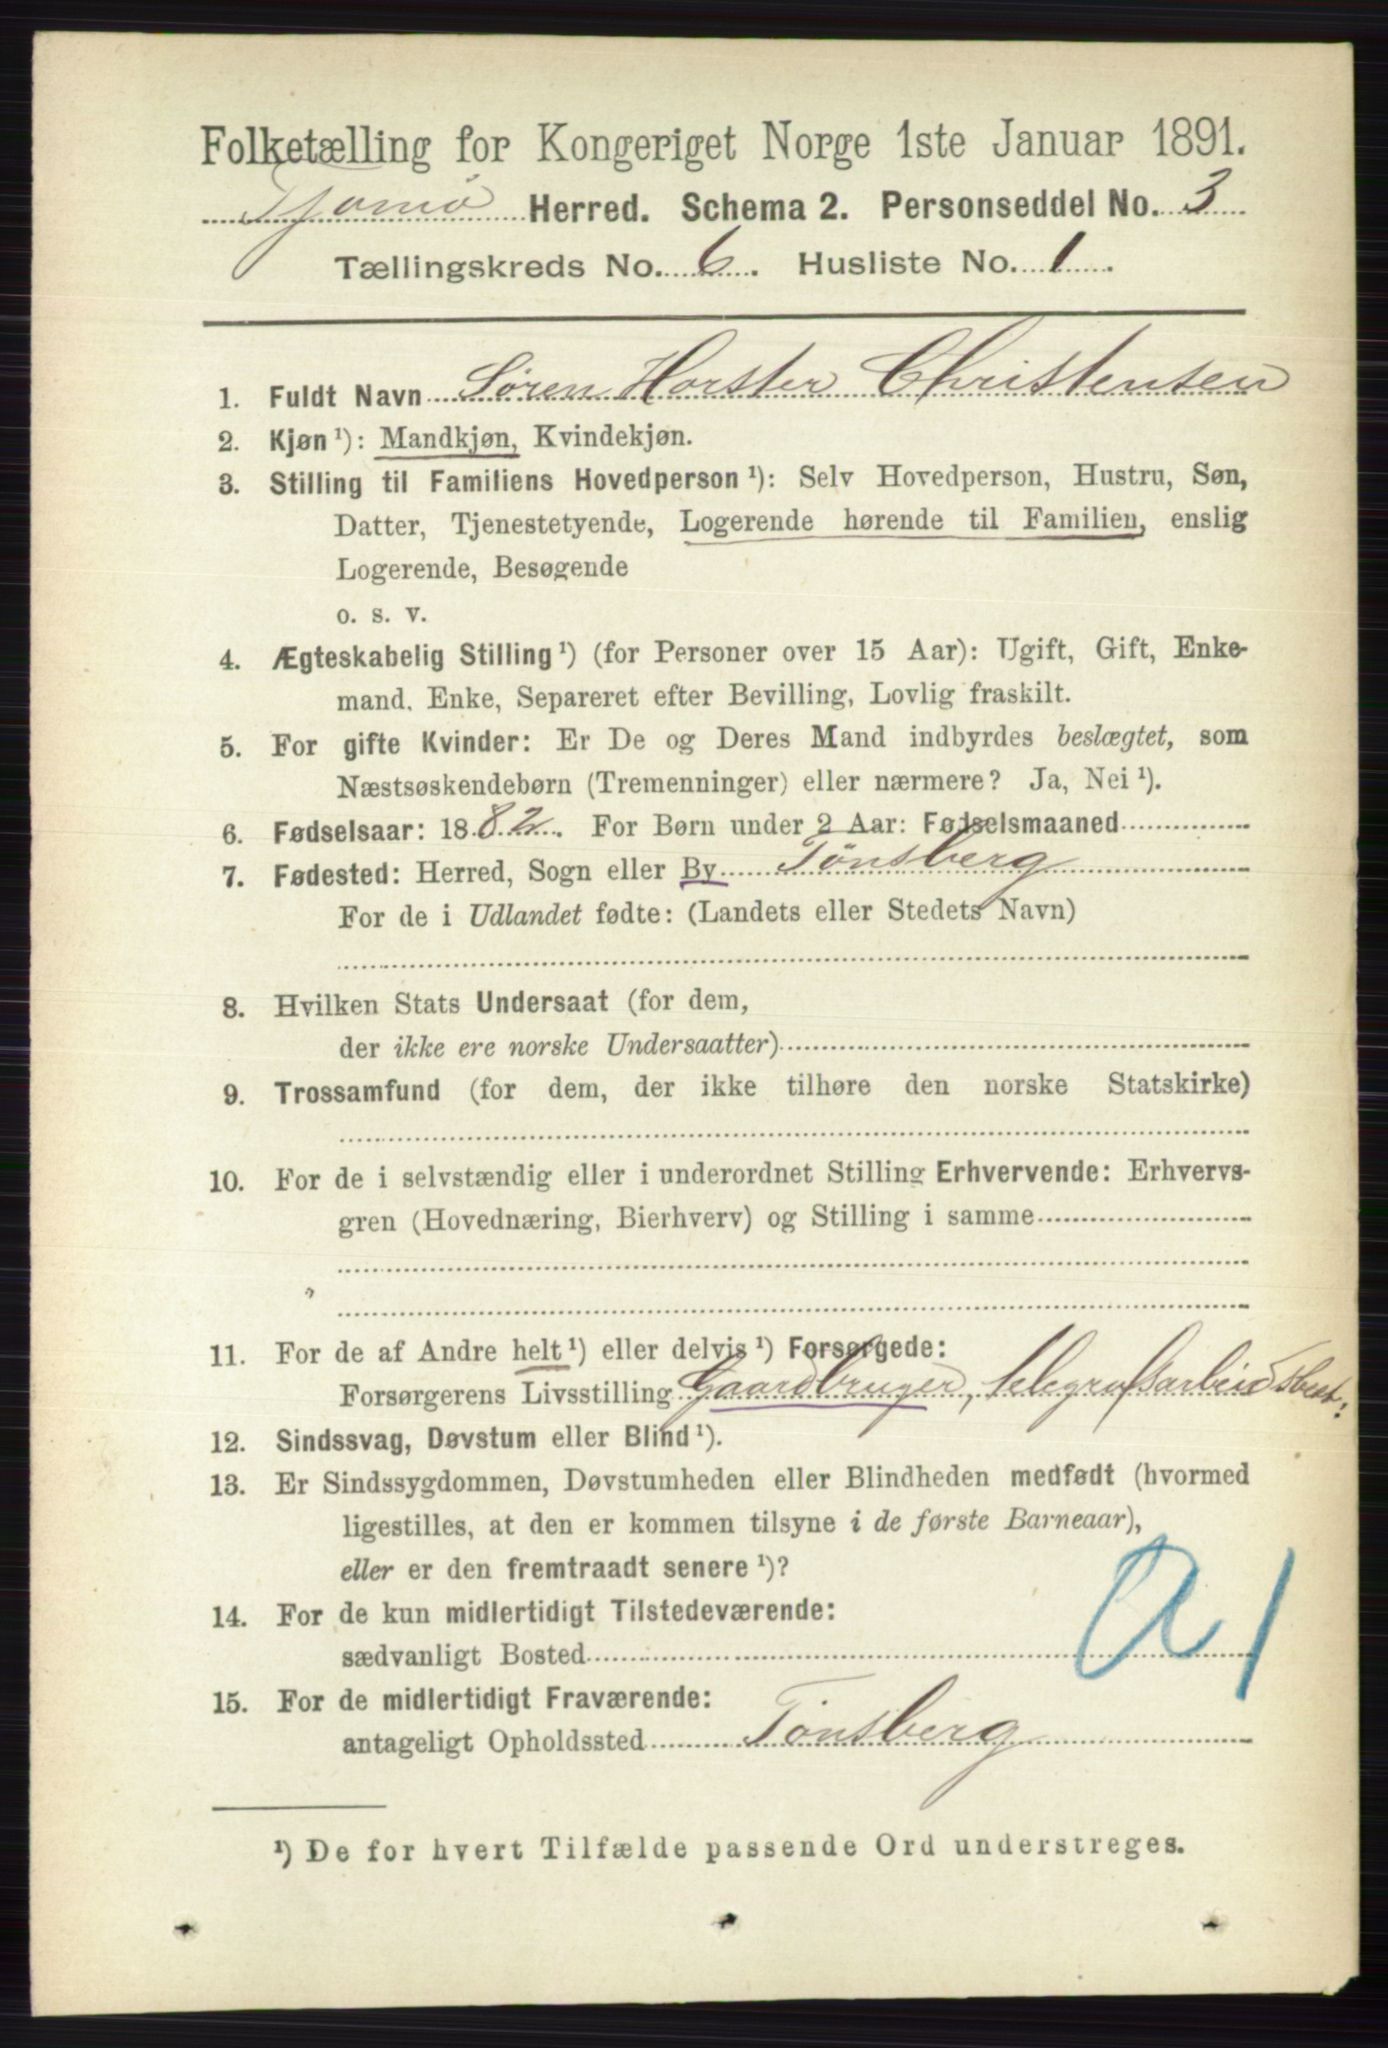 Folketælling for Kongeriget Norge 1ste Januar 1891.
Tjømø Herred. Schema 2. Personseddel No. 3
Tællingskreds No. 6. Husliste No. 1.
1. Fuldt Navn Søren Horster Christensen
2. Kjøn ¹): Mandkjøn, Kvindekjøn.
3. Stilling til Familiens Hovedperson ¹): Selv Hovedperson, Hustru, Søn,
Datter, Tjenestetyende, Logerende hørende til Familien, enslig
Logerende, Besøgende
o. s. v.
4. Ægteskabelig Stilling ¹) (for Personer over 15 Aar): Ugift, Gift, Enke-
mand. Enke, Separeret efter Bevilling, Lovlig fraskilt.
5. For gifte Kvinder: Er De og Deres Mand indbyrdes beslægtet, som
Næstsøskendebørn (Tremenninger) eller nærmere? Ja, Nei ¹).
6. Fødselsaar: 1882. For Børn under 2 Aar: Fødselsmaaned
7. Fødested: Herred, Sogn eller By Tønsberg
For de i Udlandet fødte: (Landets eller Stedets Navn)
8. Hvilken Stats Undersaat (for dem,
der ikke ere norske Undersaatter)
9. Trossamfund (for dem, der ikke tilhøre den norske Statskirke)
10. For de i selvstændig eller i underordnet Stilling Erhvervende: Erhvervs-
gren (Hovednæring, Bierhverv) og Stilling i samme
11. For de af Andre helt ¹) eller delvis ¹) Forsørgede:
Forsørgerens Livsstilling Gaardbruger, telegrafsarbeidsbest.
12. Sindssvag, Døvstum eller Blind ¹).
13. Er Sindssygdommen, Døvstumheden eller Blindheden medfødt (hvormed
ligestilles, at den er kommen tilsyne i de første Barneaar),
eller er den fremtraadt senere ¹)?
14. For de kun midlertidigt Tilstedeværende:
sædvanligt Bosted
a 1
15. For de midlertidigt Fraværende:
antageligt Opholdssted Tønsberg
¹) De for hvert Tilfælde passende Ord understreges.